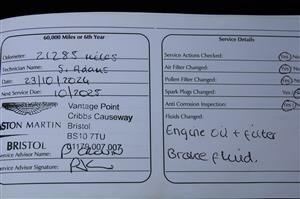 60,000 Miles or 6th Year
Odometer: 21285 miles
Technician Name: S. Adams
Date: 23/10/2024
Next Service Due: 10/2025
Vantage Point
Cribbs Causeway
ASTON MARTIN Bristol
BS10 7TU
BRISTOL 01179 007 007
Service Advisor Name:
Service Advisor Signature:
Service Details
Service Actions Checked: Yes
Air Filter Changed: Yes / No
Pollen Filter Changed: Yes / No
Spark Plugs Changed: Yes / No
Anti Corrosion Inspection: Yes
Fluids Changed:
Engine oil + filter
Brake fluid.